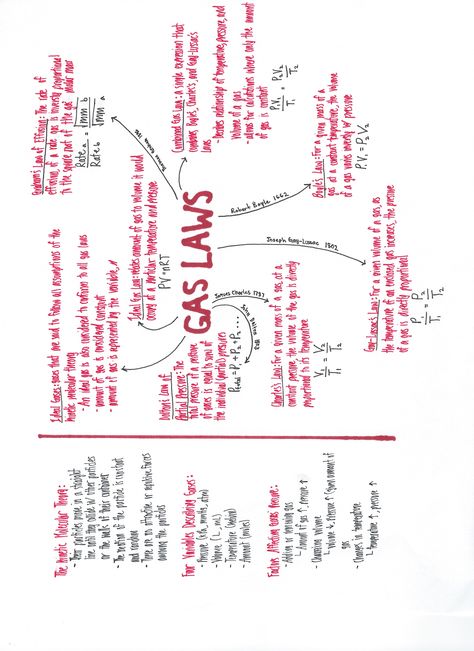 The Kinetic Molecular Theory:
- Their particles move in a straight
line until they collide w/ other particles
or the walls of their container
- The motion of the particle is constant
and random
- There are no attractive or repulsive forces
among the particles
Four Variables Describing Gases:
- Pressure (kPa, mmHg, atm)
- Volume (L, mL)
- Temperature (Kelvin)
- Amount (moles)
Factors Affecting Gases Pressure:
- Adding or removing gas
↳ Amount of gas ↑, pressure ↑
- Changing volume
↳ Volume ↓, Pressure ↑ (given amount of
gas
- Changes in temperature
↳ temperature ↑, pressure ↑
GAS LAWS
Ideal Gases: gases that are said to follow all assumptions of the
kinetic molecular theory
- An ideal gas is also considered to conform to all gas laws
- amount of gas is considered constant
- amount of gas is represented by the variable, n
Ideal Gas Law: relates amount of gas to volume it would
occupy at a particular temperature and pressure
PV = nRT
Graham's Law of Effusion: the rate of
effusion of a gas is inversely proportional
to the square root of the gas' molar mass
Rate a / Rate b = √mm b / √mm a
Thomas Graham
Combined Gas Law: a single expression that
combines Boyle's, Charles's, and Gay-Lussac's
laws
- Describes relationship of temperature, pressure, and
volume of a gas
- allows for calculations where only the amount
of gas is constant
P₁V₁ / T₁ = P₂V₂ / T₂
Robert Boyle 1662
Boyle's Law: For a given mass of a
gas at a constant temperature, the volume
of a gas varies inversely w/ pressure
P₁V₁ = P₂V₂
Joseph Gay-Lussac 1802
Gay-Lussac's Law: For a given volume of a gas, as
the temperature of an enclosed gas increases, the pressure
of a gas is directly proportional
P₁ / T₁ = P₂ / T₂
Jacques Charles 1787
Charles's Law: For a given mass of a gas, at a
constant pressure, the volume of the gas is directly
proportional to its temperature
V₁ / T₁ = V₂ / T₂
John Dalton 1801
Dalton's Law of
Partial Pressure: The
total pressure of a mixture
of gases is equal to sum of
the individual (partial) pressures
Ptotal = P₁ + P₂ + P₃ ...